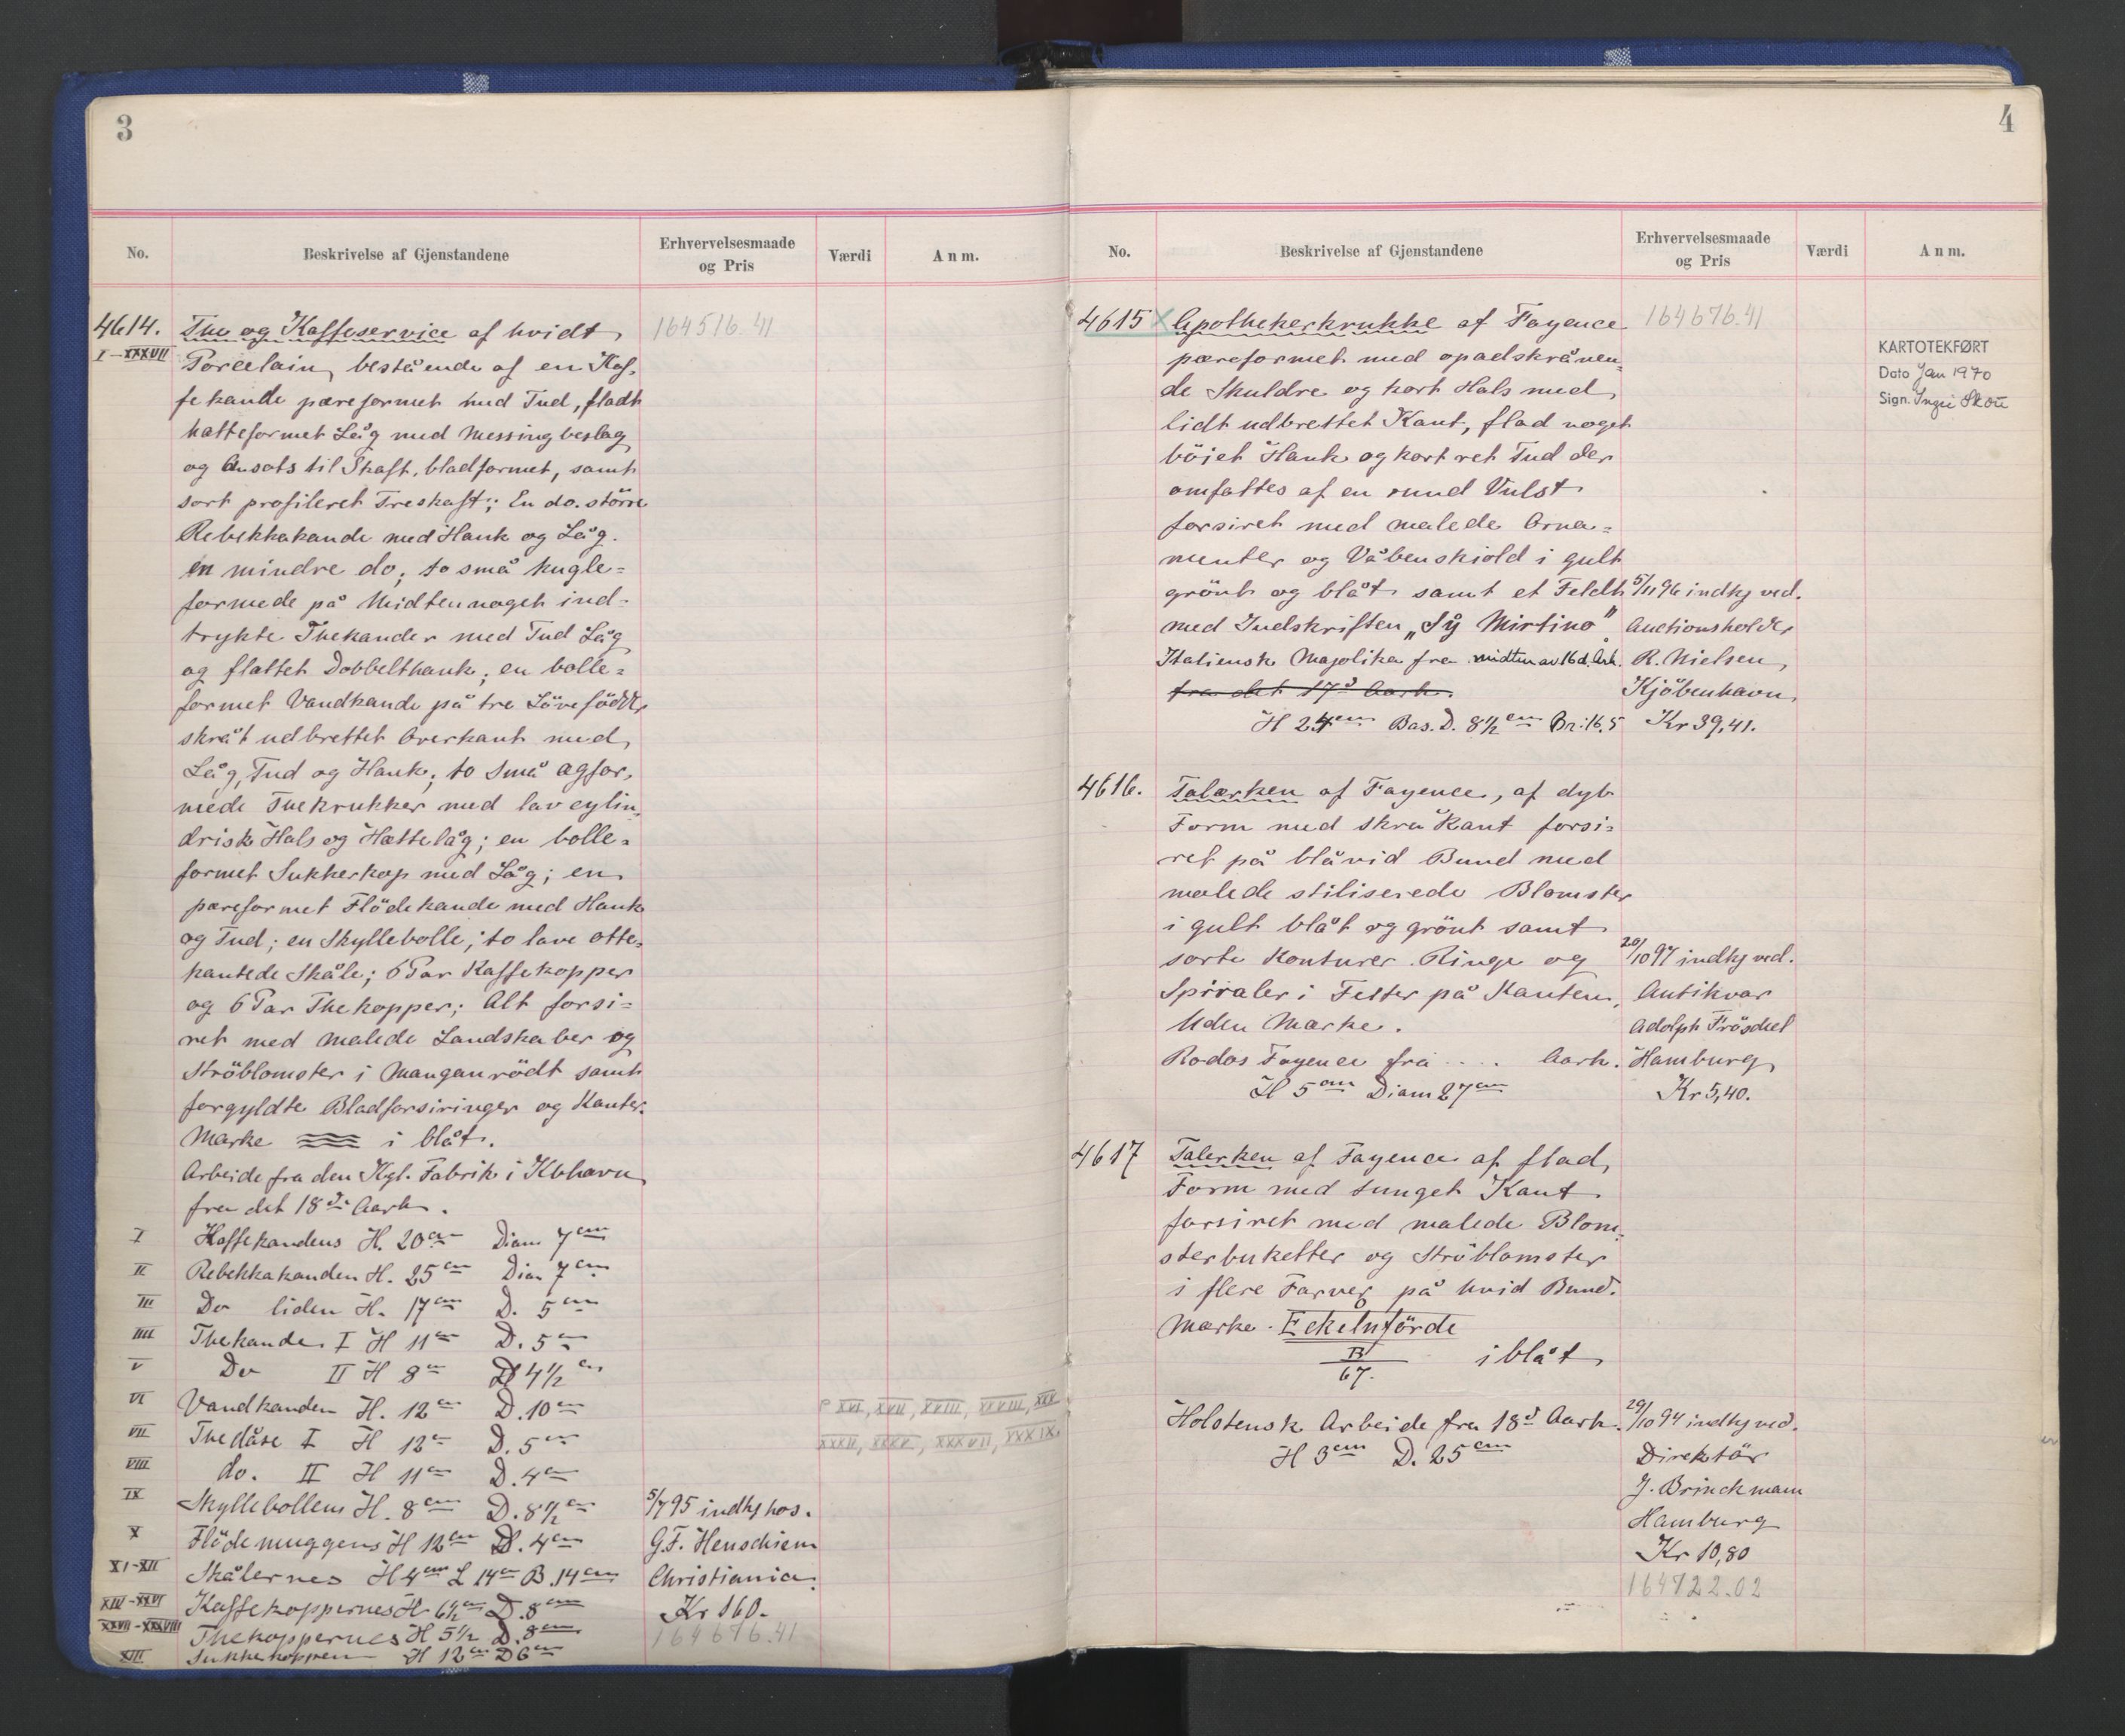 3
No.
Beskrivelse af Gjenstandene
Erhvervelsesmaade
og Pris
Værdi
Anm.
4614.
I-XXXVII
The og Kaffeservice af hvidt
164516.41
Porcelain, bestående af en Kaf-
fekande pæreformet med Tud, fladt
hatteformet Låg med Messingbeslag
og Ansats til Skaft, bladformet, samt
sort profileret Treskaft; En do. större
Rebekkakande med Hank og Låg.
en mindre do; to små kugle=
formede på Midten noget ind=
trykte Thekander med Tud Låg
og flettet Dobbelthank; en bolle=
formet Vandkande på tre Lövefödder
skråt udbrettet Overkant med
Låg, Tud og Hank; to små ægfor-
mede Thekrukker med lav cylin-
drisk Hals og Hættelåg; en bolle=
formet Sukkerkop med Låg; en
pæreformet Flödekande med Hank
og Tud; en Skyllebolle; to lave otte-
kantede Skåle; 6 Par Kaffekopper
og 6 Par Thekopper; Alt forsi=
ret med malede Landskaber og
Ströblomster i Manganrödt samt
forgyldte Bladforsiringer og Kanter.
Mærke i blåt.
Arbeide fra den Kgl. Fabrik i Kbhavn
fra det 18de Aarh.
I Kaffekandens H. 20cm Diam 7cm
II Rebekkakanden H. 25cm Diam 7cm
III Do liden H. 17cm D. 5cm
IIII Thekande I H 11cm D. 5cm
V Do II H 8cm D 4½cm
VI Vandkanden H. 12cm D. 10cm
VII Thedåse I H 12cm D. 5cm
VIII do. II H 11cm D. 4cm
IX Skyllebollens H. 8cm D. 8½cm
X Flödemuggens H 12cm D. 4cm
XI-XII Skålernes H 4cm L 14cm B. 14cm
XIV-XXVI Kaffekoppernes H. 6½cm D. 8cm
XXVII-XXXVIII Thekoppernes H 5½ D. 8cm
XIII Sukkerkoppen H 12cm D 6cm
5/7 95 indkj hos.
G.F. Henschiem
Christiania.
Kr 160.
164676.41
XVI, XVII, XXIII, XXVIII, XXX
XXXII, XXXV, XXXVII, XXXIX.
4
No.
Beskrivelse af Gjenstandene
Erhvervelsesmaade
og Pris
Værdi
Anm.
4615 X Apothekerkrukke af Fayence
164676.41
pæreformet med opadskrånen=
de Skuldre og kort Hals med
lidt udbrettet Kant, flad noget
böiet Hank og kort ret Tud der
omfattes af en rund Vulst
forsiret med malede Orna=
menter og Våbenskiold i gult
grönt og blåt samt et Feldt
med Indskriften „Sÿ Mirtino"
Italiensk Majolika fra midten av 16d. Arh.
fra det 17d Aarh.
H 24cm Bas. D. 8½cm Br: 16,5
5/11 96 indkj ved.
Auctionsholder
R. Nielsen,
Kjöbenhavn,
Kr 39,41.
KARTOTEKFØRT
Dato Jan 1970
Sign. Inger Skou
4616. Talærken af Fayence, af dyb
Form med skrå Kant forsi=
ret på blåvid Bund med
malede stiliserede Blomster
i gult blåt og grönt samt
sorte Konturer. Ringe og
Spiraler i Felter på Kanten,
Uden Mærke.
Rodos Fayence fra .... Aarh.
H 5cm Diam 27cm
20/10 94 indkj ved.
Antikvar
Adolph Fröschel
Hamburg
Kr 5,40.
4617 Talerken af Fayence af flad
Form med tunget Kant
forsiret med malede Blom-
sterbuketter og Ströblomster
i flere Farver på hvid Bund.
Mærke. Eckelnförde
B
67. i blåt
Holstensk Arbeide fra 18d Aarh.
H 3cm D. 25cm
29/10 94 indkj ved.
Direktör
J. Brinckmann
Hamburg
Kr 10,80
164722.02